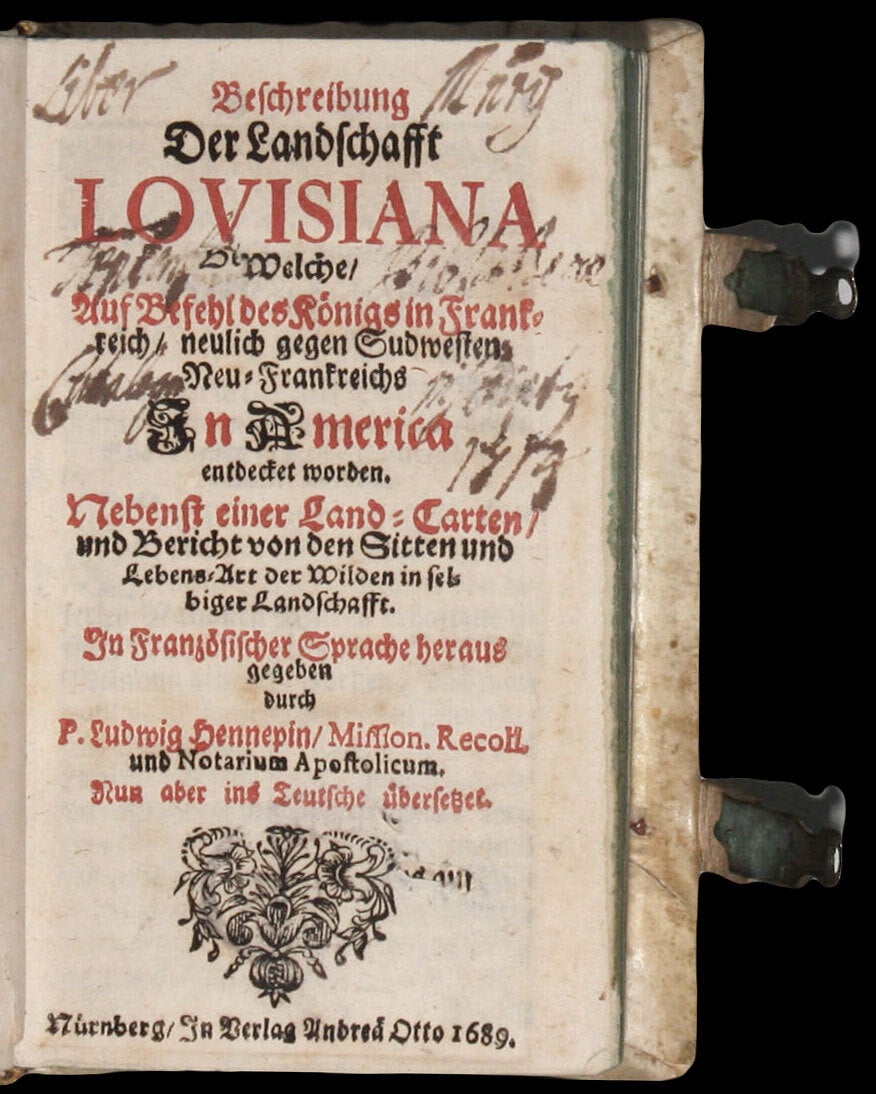 Liber
Beschreibung
Der Landschafft
LOVISIANA
Welche/
Auf Befehl des Königs in Franck-
reich/ neulich gegen Sudwesten
Neu-Franckreichs
In America
entdecket worden.
1713
Nebenst einer Land-Carten/
und Bericht von den Sitten und
Lebens-Art der Wilden in sel-
biger Landschafft.
In Französischer Sprache heraus
gegeben
durch
P. Ludwig Hennepin/ Mission. Recoll.
und Notarium Apostolicum.
Nun aber ins Teutsche übersetzet.
Nürnberg/ In Verlag Andreä Otto 1689.